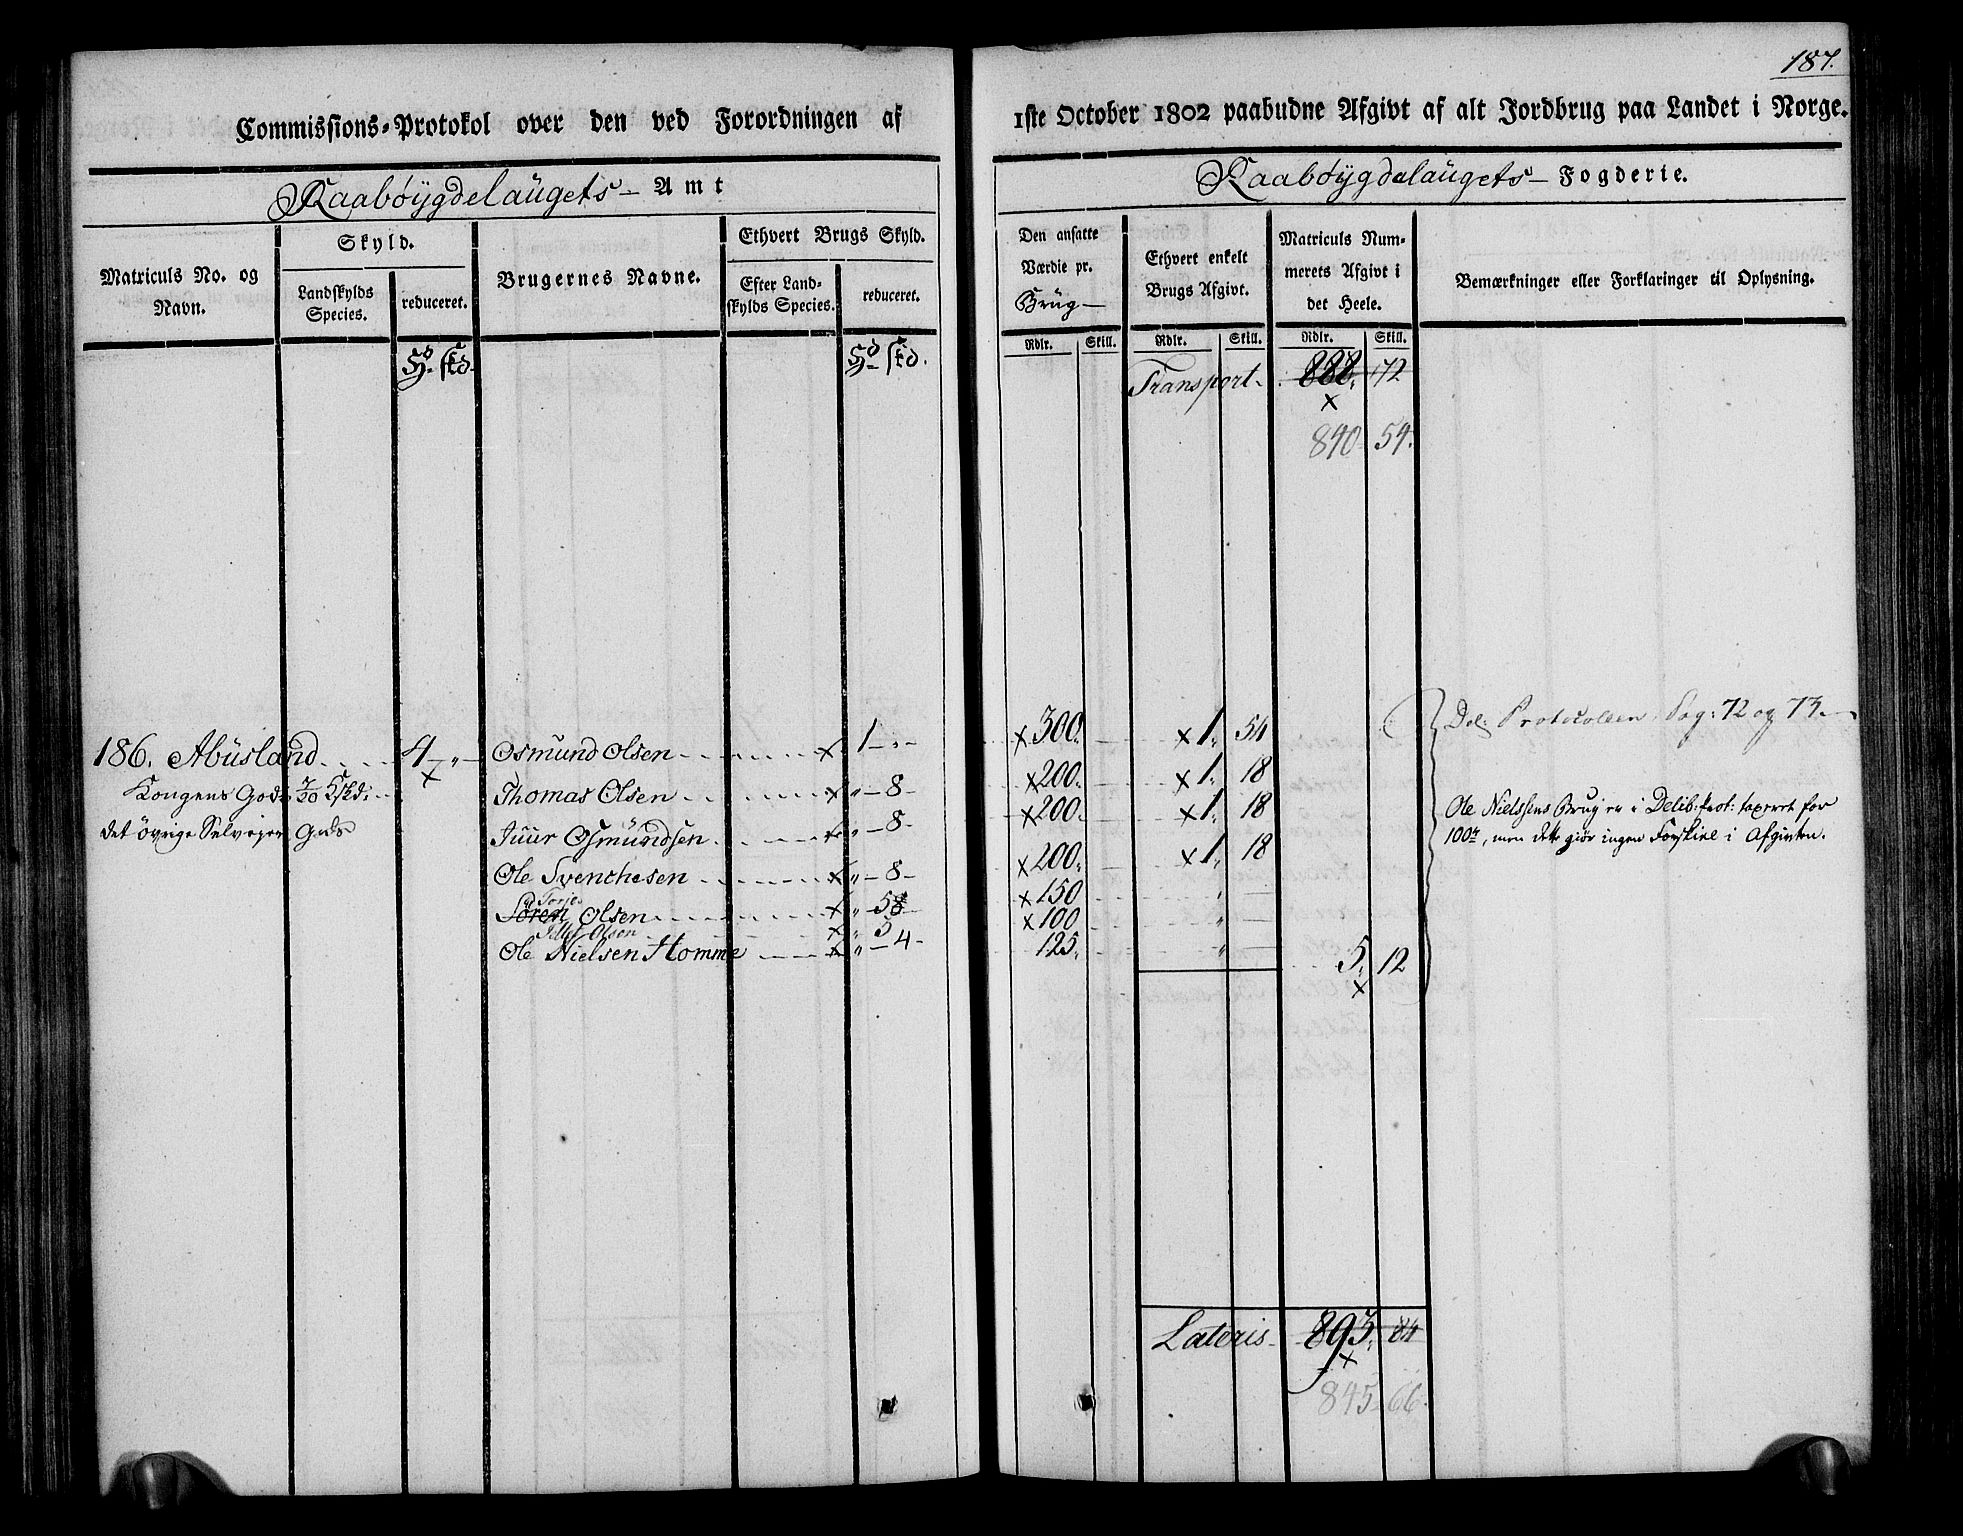 187.
Commissions-Protokol over den ved Forordningen af 1ste October 1802 paabudne Afgivt af alt Jordbrug paa Landet i Norge.
Raabøygdelaugets Amt
Raabøygdelaugets Fogderie.
Matriculs No. og Navn.
Skyld.
Landskylds Species.
reduceret.
Brugernes Navne.
Ethvert Brugs Skyld.
Efter Landskylds Species.
reduceret.
Den ansatte Værdie pr. Brug
Ethvert enkelt Brugs Afgivt.
Matriculs Nummerets Afgivt i det Heele.
Bemærkninger eller Forklaringer til Oplysning.
Rdlr. Skill. Rdlr. Skill. Rdlr. Skill.
Hd skd. Hd skd.
Transport. 888. 72
840 54.
Del: Protocolen Pag: 72 og 73.
186. Abusland 4 „ Osmund Olsen x 1 „ x 300. x 1. 54
Kongens Gods 7/20 Hskd: Thomas Olsen x „ 8 x 200. x 1. 18
det øvrige Selveyer Gods Juur Osmundsen x „ 8 x 200. x 1. 18
Ole Nielssens Brug er i Delib: Prot: taxeret for
100rd, men dette giør ingen Forskiel i Afgivten.
Ole Svenchesen x „ 8 x 200. x 1. 18
Torje
Søren Olsen x „ 5 x 150 „
Olsen x „ 3 x 100 „
Ole Nielsen Homme x „ 4 125. „ 5. 12
x
Lateris 893. 84
x
845 66.